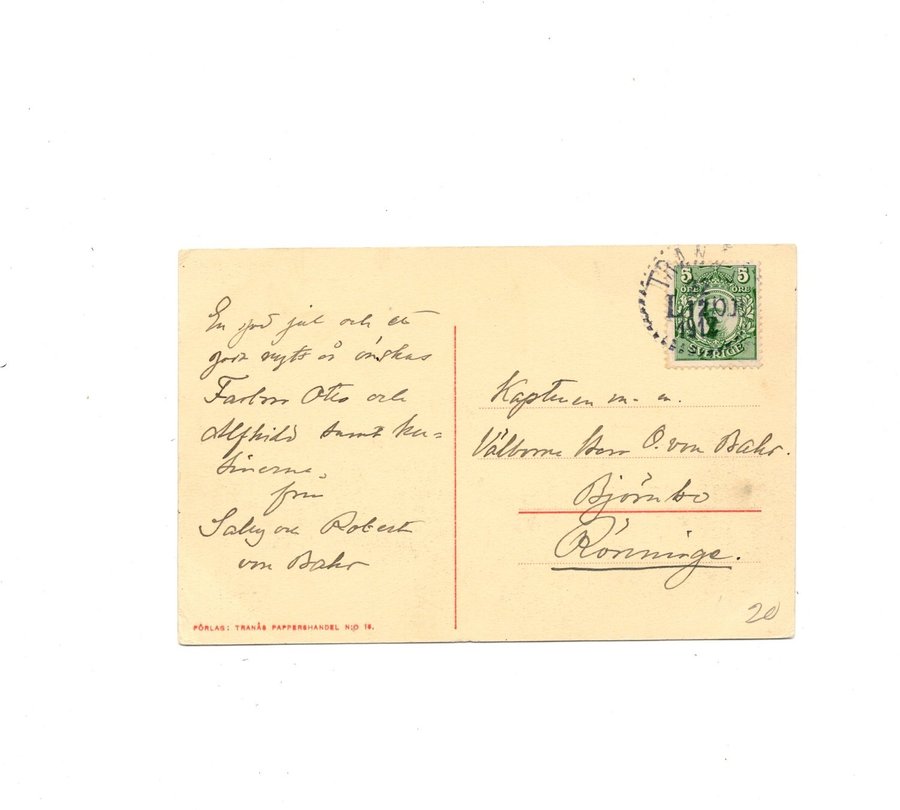 En god jul och ett
godt nytt år önskas
Farbror Otto och
Alfhild samt ku=
sinerna,
från
Sally och Robert
von Bahr
FÖRLAG: TRANÅS PAPPERSHANDEL N:O 16.
TRANÅS
1912
5 5
ÖRE ÖRE
SVERIGE
Kaptenen m. m.
Välborne Herr O. von Bahr.
Björnbo
Rönninge.
20